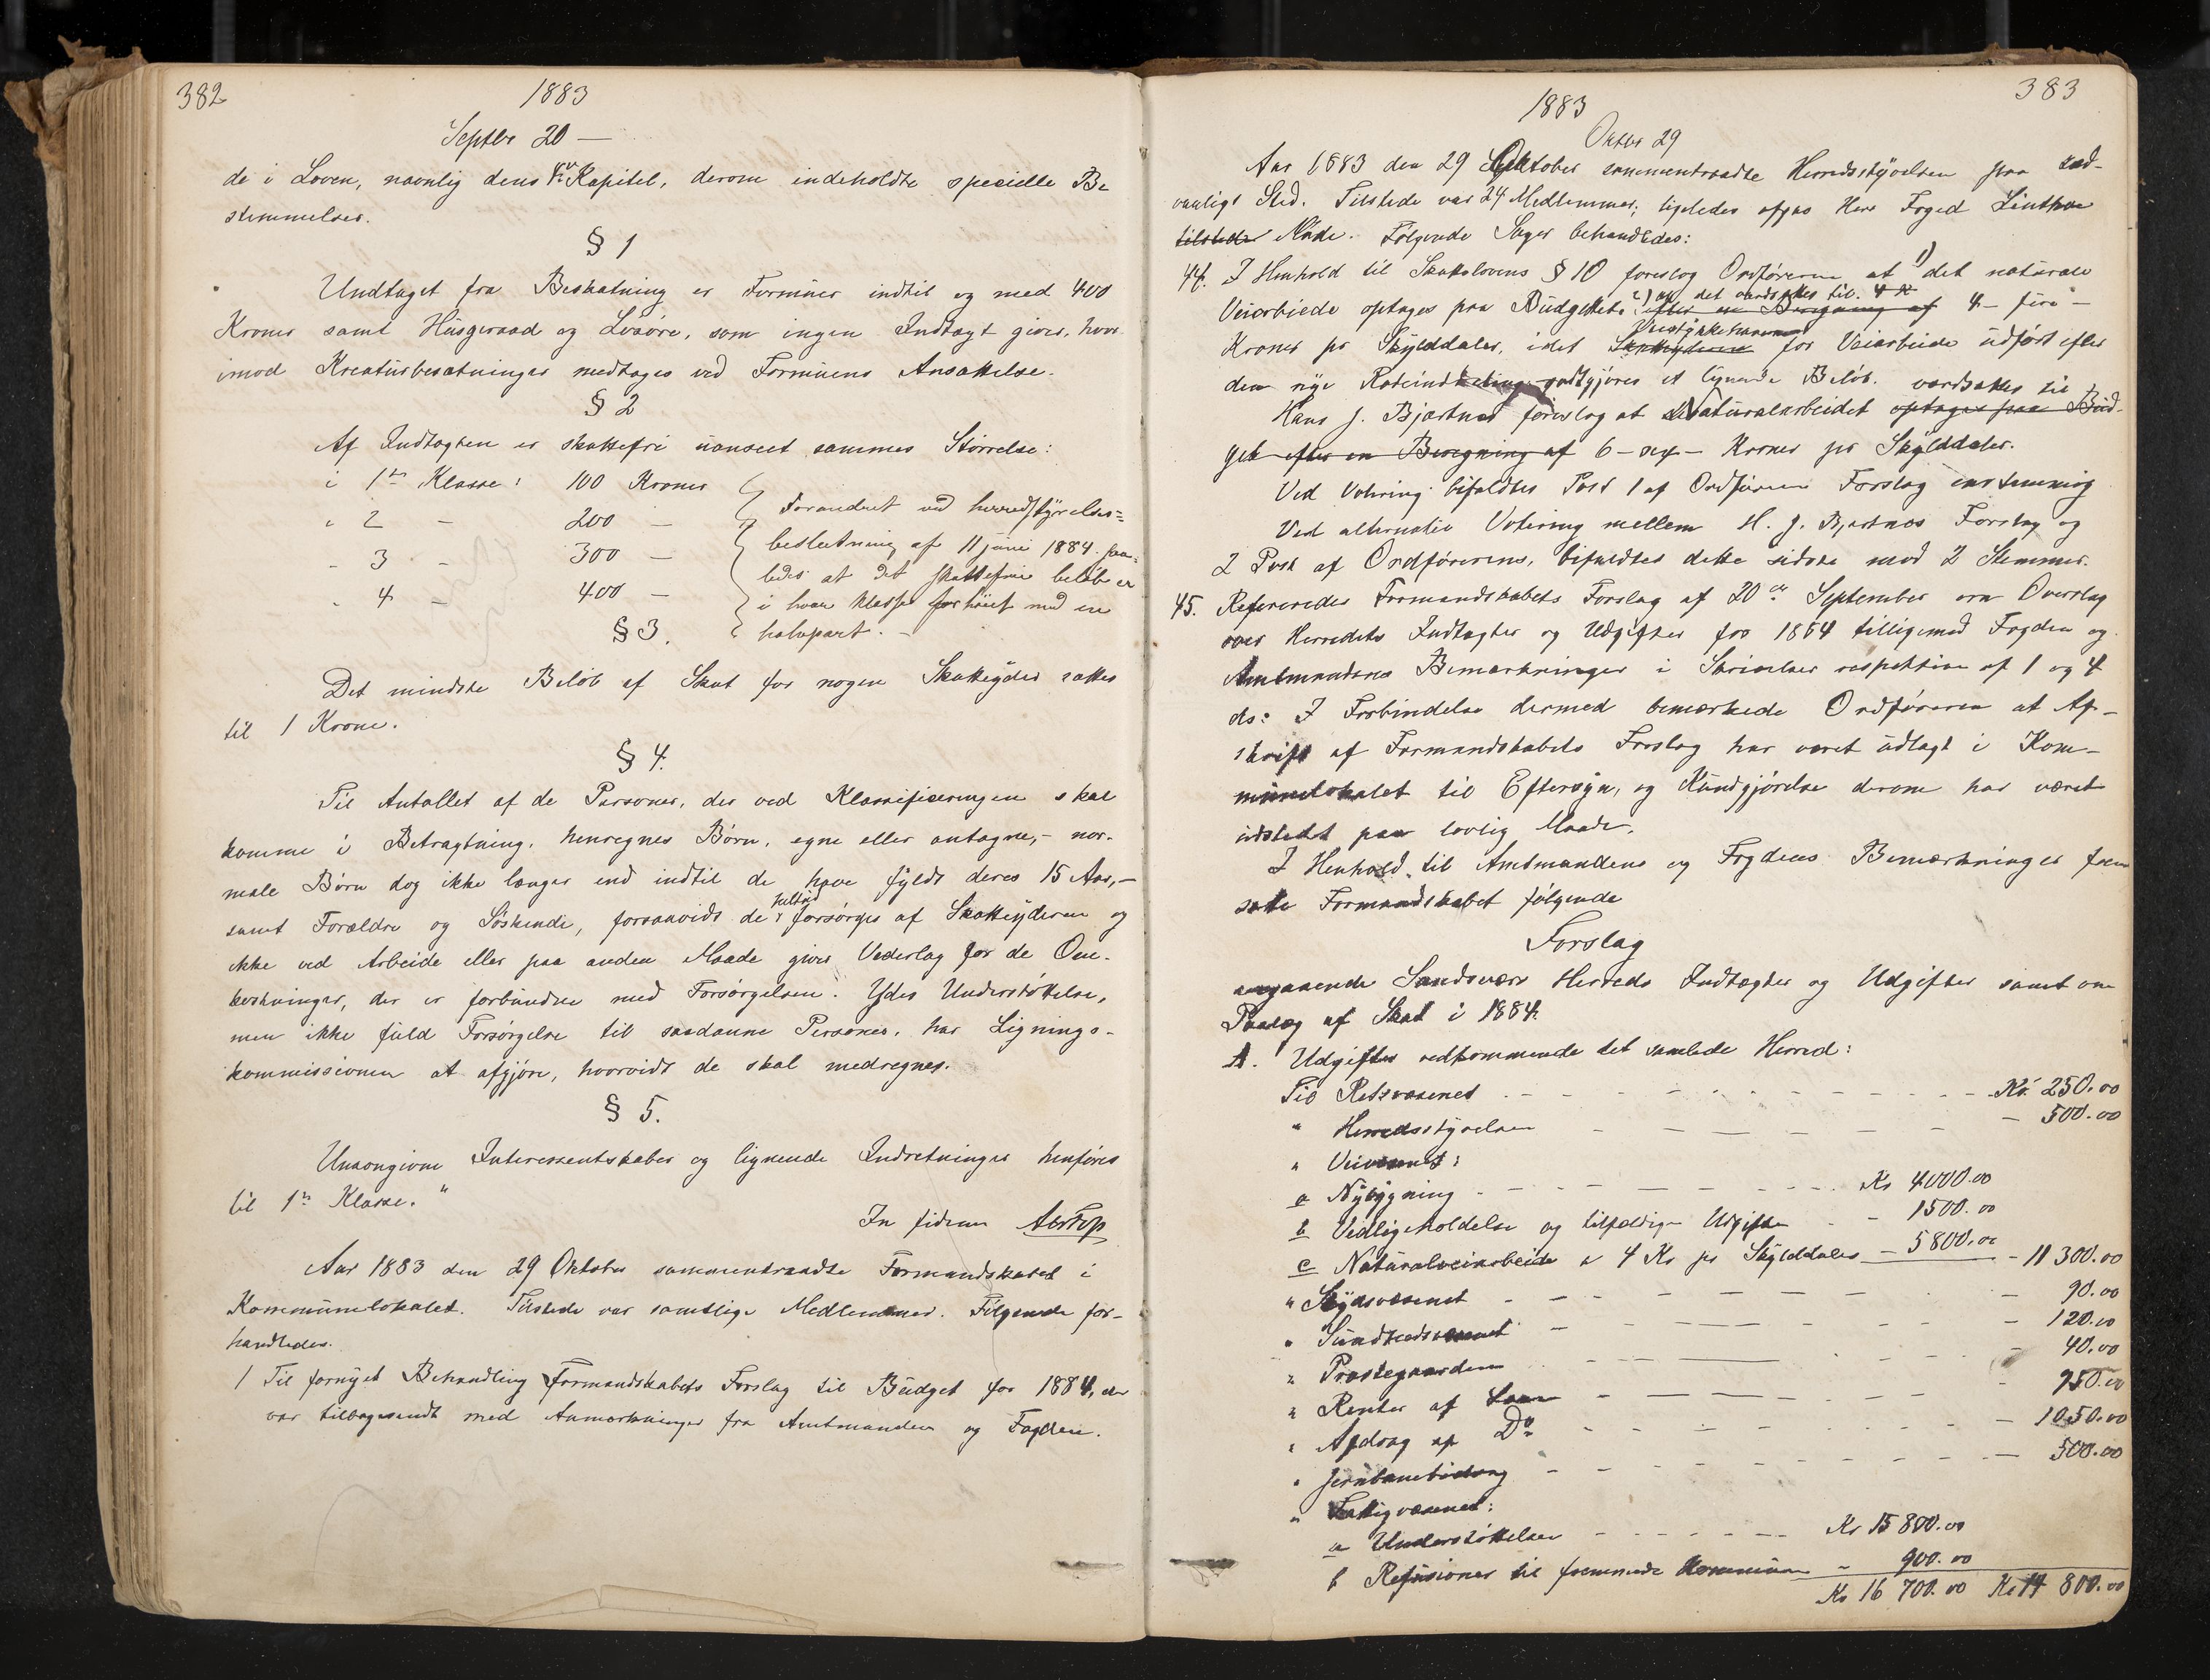 382
1883
Septbr 20 —
de i Loven, navnlig dens 8de Kapitel, derom indeholdte specielle Be
stemmelser.
§ 1
Undtaget fra Beskatning er Formuer indtil og med 400
Kroner samt Husgeraad og Løsøre, som ingen Indtægt giver, hvor
imod Kreaturbesætninger medtages ved Formuens Ansættelse.
§ 2
Af Indtægten er skattefri uanseet sammes Størrelse:
i 1ste Klasse: 100 Kroner
" 2 — 200 —
" 3 — 300 —
" 4 — 400 —
Forandret ved herredsstyrelses=
beslutning af 11 juni 1884 saa=
ledes at det skattefrie beløb er
i hver klasse forhøiet med en
halvpart. —
§ 3.
Det mindste Beløb af Skat for nogen Skatteyder sættes
til 1 Krone.
§ 4.
Til Antallet af de Personer, der ved Klassificeringen skal
komme i Betragtning, henregnes Børn, egne eller antagne, – nor-
male Børn dog ikke længer end indtil de have fyldt deres 15 Aar, –
samt Forældre og Søskende, forsaavidt de fuldt ud forsørges af Skatteyderen og
ikke ved Arbeide eller paa anden Maade giver Vederlag for de Om-
kostninger, der er forbundne med Forsørgelsen. Ydes Understøttelse,
men ikke fuld Forsørgelse til saadanne Personer, har Lignings-
kommissionen at afgjøre, hvorvidt de skal medregnes.
§ 5.
Unavngivne Interessentskaber og lignende Indretninger henføres
til 1ste Klasse. "
In fidem
Aar 1883 den 29 Oktober sammentraadte Formandskabet i
Kommunelokalet. Tilstede var samtlige Medlemmer. Følgende for-
handledes.
1 Til fornyet Behandling Formandskabets Forslag til Budget for 1884, der
var tilbagesendt med Anmærkninger fra Amtmanden og Fogden.
383
1883
Oktbr 29
Aar 1883 den 29 Oktober sammentraadte Herredsstyrelsen paa sæd-
vanligt Sted. Tilstede var 24 Medlemmer; ligeledes afgav Herr Foged
tilstede Møde. Følgende Sager behandledes:
44. I Henhold til Skattelovens § 10 foreslog Ordføreren at 1) det naturale
Veiarbeide optages paa Budgettet 2) at det værdsættes til efter en Beregning af 4 – fire –
Kroner pr Skylddaler, idet Skatteyderne for Veiarbeide udført efter
den nye Rodeinddeling godtgjøres et lignende Beløb.
Hans J. Bjørtnes foreslog at Naturalarbeidet værdsættes til optages paa Bud-
get efter en Beregning af 6 – sex – Kroner pr Skylddaler.
Ved Votering bifaldtes Post 1 af Ordførerens Forslag enstemmig
Ved alternativ Votering mellem H. J. Bjørtnes Forslag og
2 Post af Ordførerens, bifaldtes dette sidste mod 2 Stemmer.
45. Refereredes Formandskabets Forslag af 20de September om Overslag
over Herredets Indtægter og Udgifter for 1884 tilligemed Fogden og
Amtmandens Bemærkninger i Skrivelser respektive af 1 og 4
ds: I Forbindelse dermed bemærkede Ordføreren at Af-
skrift af Formandskabets Forslag har været udlagt i Kom-
munelokalet til Eftersyn, og Kundgjørelse derom har været
udstedt paa lovlig Maade.
I Henhold til Amtmandens og Fogdens Bemærkninger frem
satte Formandskabet følgende
Forslag
angaaende Sandsvær Herreds Indtægter og Udgifter samt om
Paalæg af Skat i 1884.
A. Udgifter vedkommende det samlede Herred:
Til Retsvæsenet - - - Kr. 250.00
" Herredsstyrelsen - - - 500.00
" Veivæsenet:
a Nybygning - - - Kr 4000.00
b Vedligeholdelse og tilfældige Udgifter - - 1500.00
c Naturalveiarbeide a 4 Kr pr Skylddaler — 5800.00 - 11 300.00
" Skydsvæsenet - - - 90.00
" Sundhedsvæsenet - - - 120.00
" Præstegaarden - - - 40.00
" Renter af Laan - - - 950.00
" Afdrag af Do - - - 1050.00
" Jernbanebidrag - - - 500.00
" Fattigvæsenet:
a Understøttelser - - - Kr 15 800.00
b Refusioner til fremmede Kommuner - 900.00
Kr 16 700.00 Kr 14 800.00